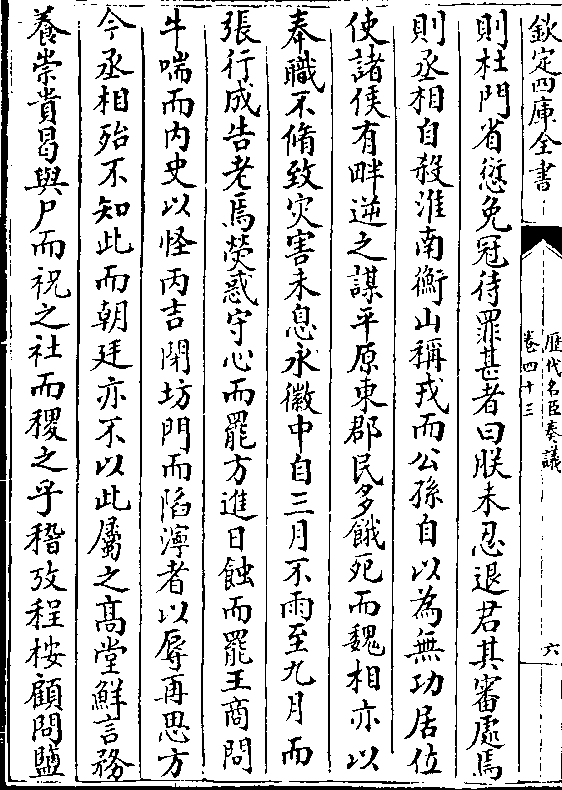 欽定四庫全書
歷代名臣奏議
卷四十三
六
則杜門省愆免冠待罪甚者曰朕未忍退君其審處焉
則丞相自殺淮南衡山稱戎而公孫自以為無功居位
使諸侯有畔逆之謀平原東郡民多餓死而魏相亦以
奉職不脩致災害未息永徽中自三月不雨至九月而
張行成告老焉熒惑守心而罷方進日蝕而罷王商問
牛喘而內史以怪丙吉閉坊門而陷濘者以辱再思方
今丞相殆不知此而朝廷亦不以此屬之髙堂鮮言務
養崇貴曷與尸而祝之社而稷之乎稽攷程桉顧問鹽